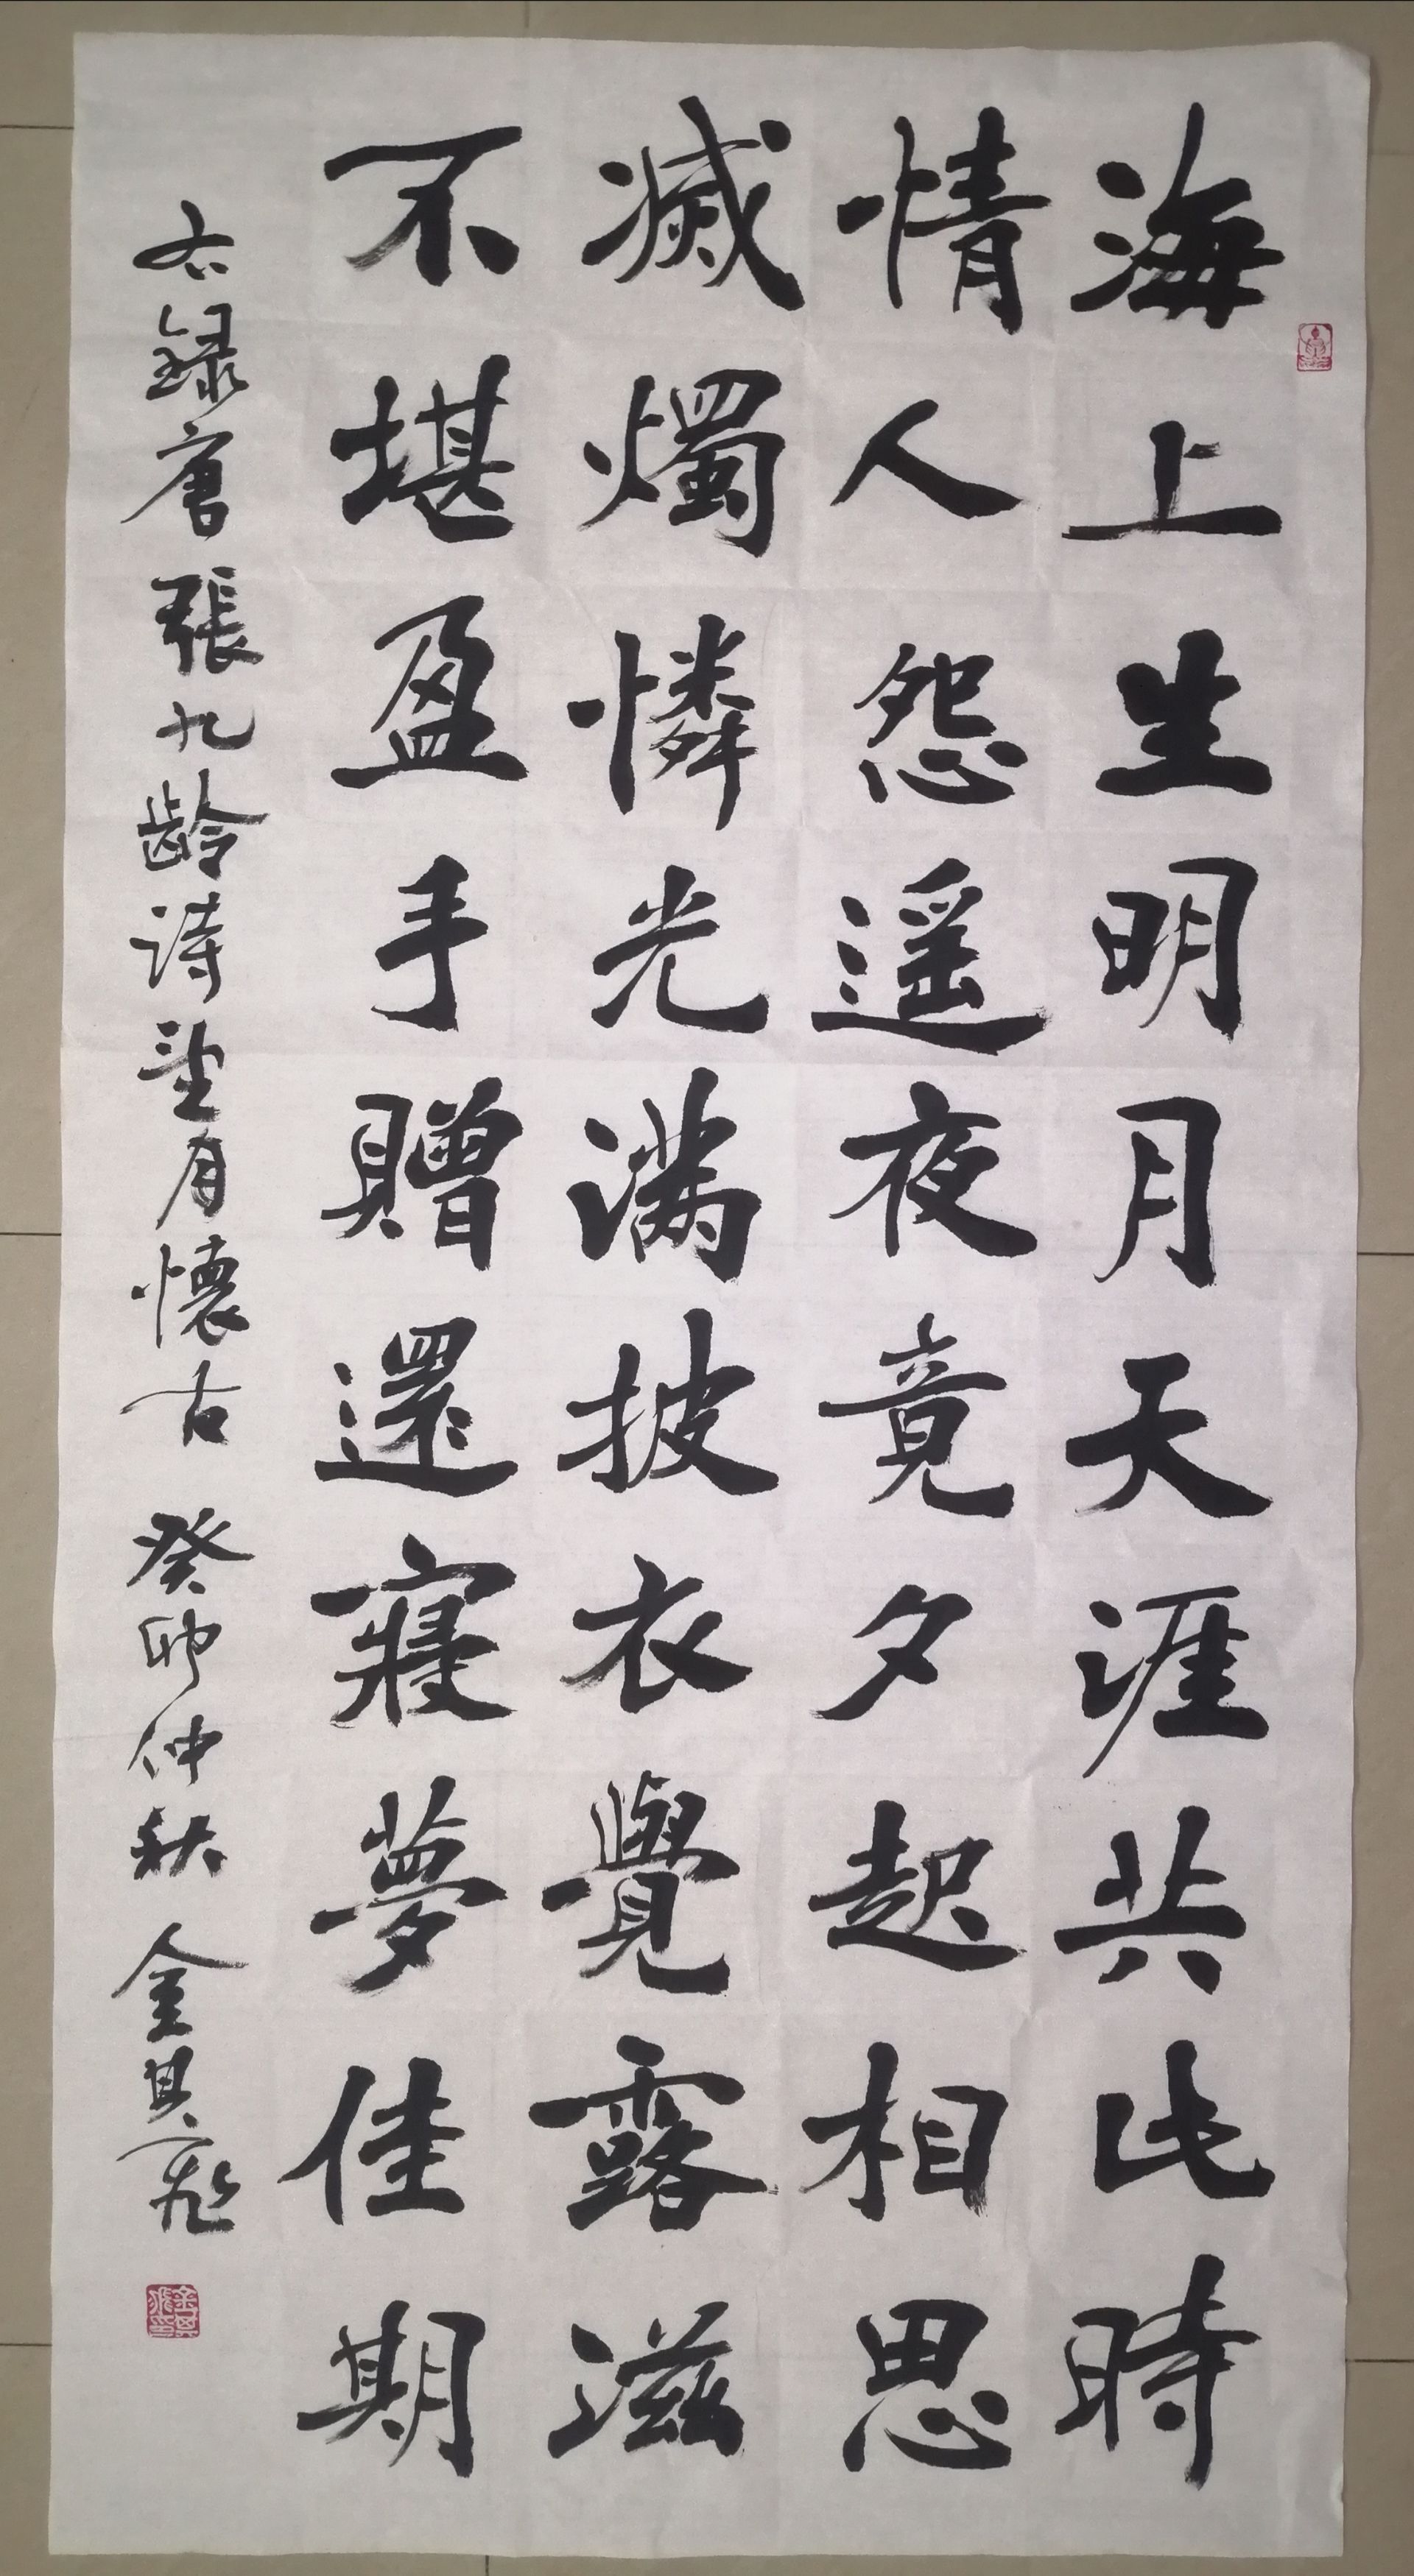 海上生明月天涯共此時
情人怨遥夜竟夕起相思
滅燭憐光满披衣覺露滋
不堪盈手贈還寢夢佳期
右録唐張九齡詩望月懷古 癸卯仲秋 金其